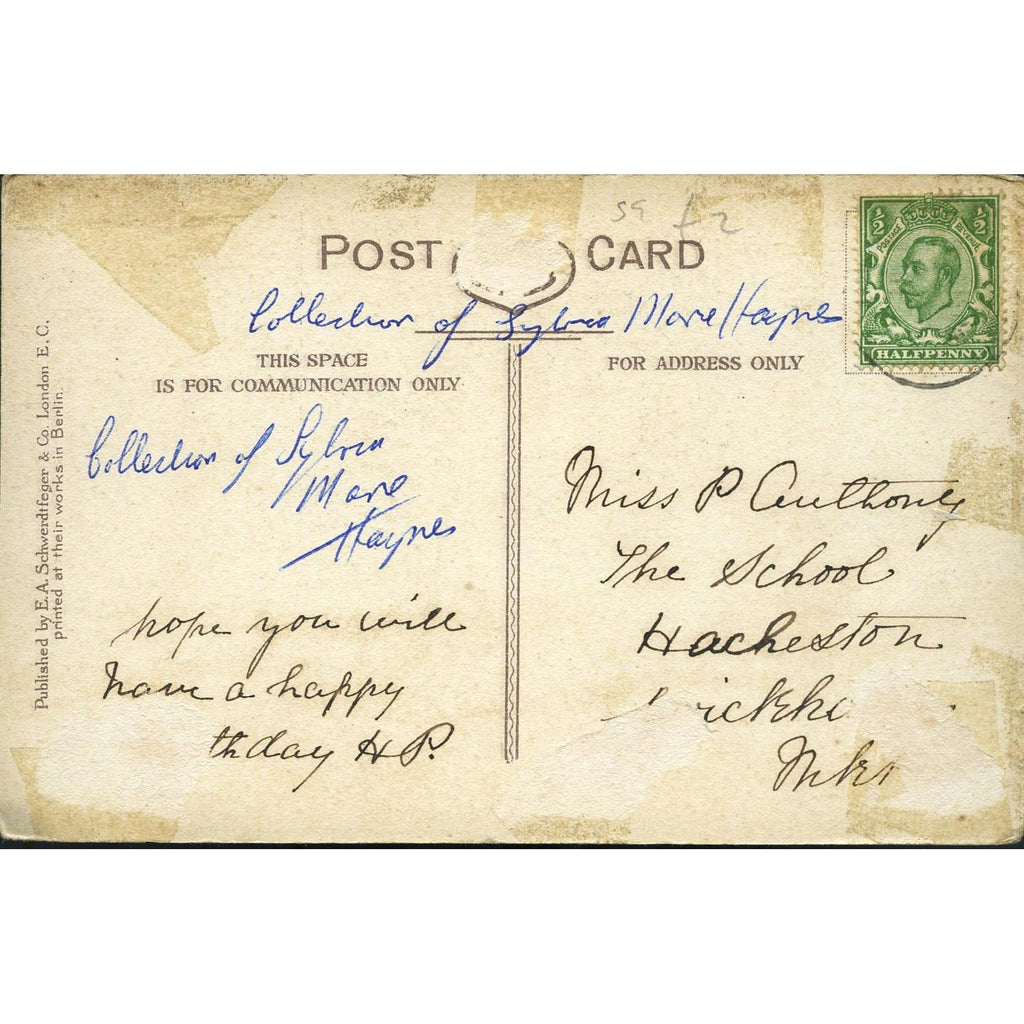 59 £2
POST CARD
½ ½
POSTAGE REVENUE
HALFPENNY
Collection of Sylvia Marie Haynes
THIS SPACE
IS FOR COMMUNICATION ONLY
FOR ADDRESS ONLY
Published by E. A. Schwerdtfeger & Co. London E. C.
printed at their works in Berlin.
Collection of Sylvia
Marie
Haynes
hope you will
have a happy
thday H P.
Miss P Anthony
The School
Hacheston